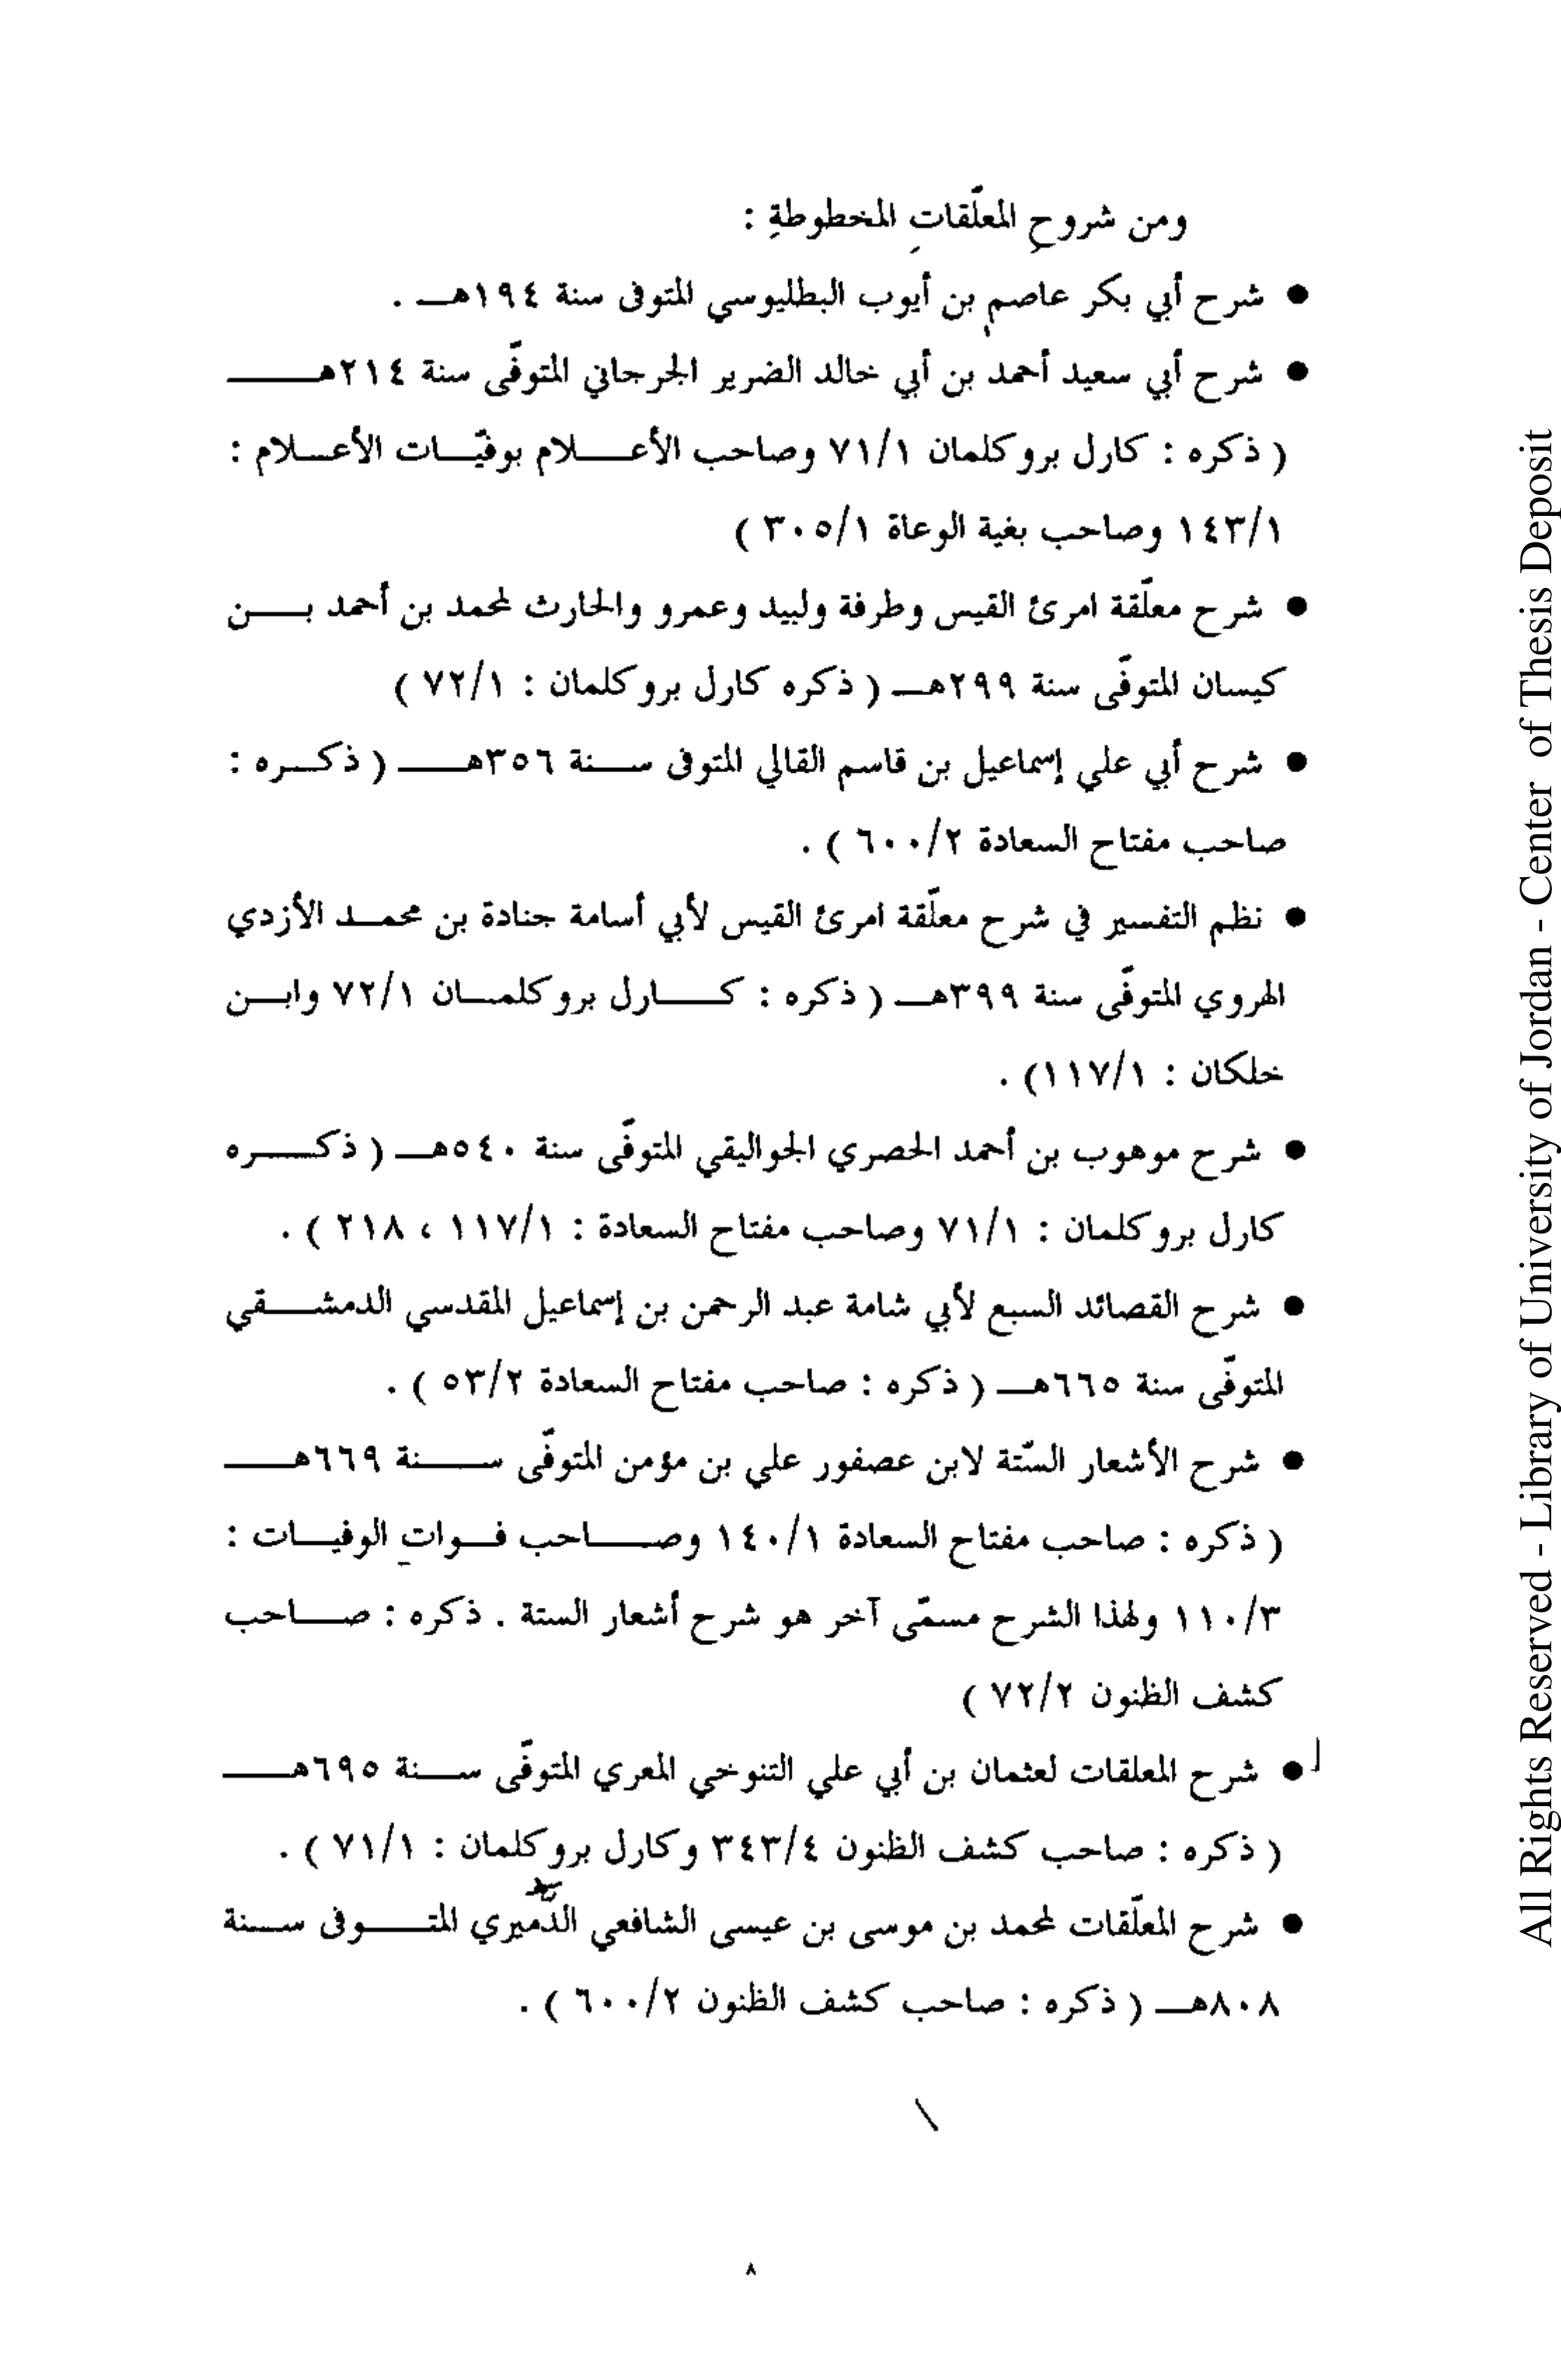 ومن شروحِ المعلّقاتِ المخطوطةِ :
● شرح أبي بكر عاصمِ بن أيوب البطليوسي المتوفى سنة ١٩٤هـ .
● شرح أبي سعيد أحمد بن أبي خالد الضرير الجرجاني المتوفّى سنة ٢١٤هـ
( ذكره : كارل بروكلمان ٧١/١ وصاحب الأعلام بوفيّات الأعلام :
١٤٣/١ وصاحب بغية الوعاة ٣٠٥/١ )
● شرح معلّقة امرئ القيس وطرفة ولبيد وعمرو والحارث لمحمد بن أحمد بن
كيسان المتوفّى سنة ٢٩٩هـ ( ذكره كارل بروكلمان : ٧٢/١ )
● شرح أبي علي إسماعيل بن قاسم القالي المتوفى سنة ٣٥٦هـ ( ذكره :
صاحب مفتاح السعادة ٦٠٠/٢ ) .
● نظم التفسير في شرح معلّقة امرئ القيس لأبي أسامة جنادة بن محمد الأزدي
الهروي المتوفّى سنة ٣٩٩هـ ( ذكره : كارل بروكلمان ٧٢/١ وابن
خلكان : ١١٧/١) .
● شرح موهوب بن أحمد الحصري الجواليقي المتوفّى سنة ٥٤٠هـ ( ذكره
كارل بروكلمان : ٧١/١ وصاحب مفتاح السعادة : ١١٧/١ ، ٢١٨ ) .
● شرح القصائد السبع لأبي شامة عبد الرحمن بن إسماعيل المقدسي الدمشقي
المتوفّى سنة ٦٦٥هـ ( ذكره : صاحب مفتاح السعادة ٥٣/٢ ) .
● شرح الأشعار الستّة لابن عصفور علي بن مؤمن المتوفّى سنة ٦٦٩هـ
( ذكره : صاحب مفتاح السعادة ١٤٠/١ وصاحب فواتِ الوفيات :
١١٠/٣ ولهذا الشرح مسمّى آخر هو شرح أشعار الستة . ذكره : صاحب
كشف الظنون ٧٢/٢ )
● شرح المعلقات لعثمان بن أبي علي التنوخي المعري المتوفّى سنة ٦٩٥هـ
( ذكره : صاحب كشف الظنون ٣٤٣/٤ وكارل بروكلمان : ٧١/١ ) .
● شرح المعلّقات لمحمد بن موسى بن عيسى الشافعي الدَّميري المتوفى سنة
٨٠٨هـ ( ذكره : صاحب كشف الظنون ٦٠٠/٢ ) .
٨
All Rights Reserved - Library of University of Jordan - Center of Thesis Deposit